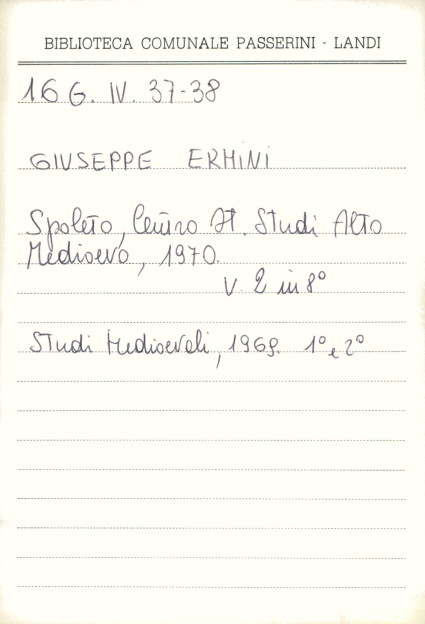 BIBLIOTECA COMUNALE PASSERINI - LANDI
16 G. IV. 37-38
GIUSEPPE ERMINI
Spoleto, Centro It. Studi Alto
Medioevo, 1970.
V. 2 in 8°
Studi Medioevali, 1969. 1° e 2°